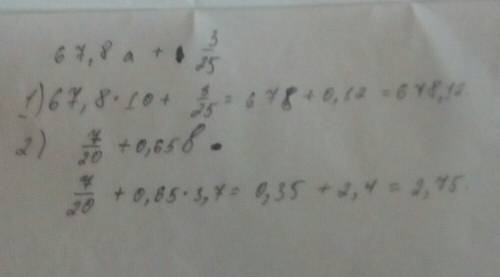 67,8 a + 3/25
1) 67,8 · 10 + 3/25 = 678 + 0,12 = 678,12
2) 7/20 + 0,65 b
7/20 + 0,65 · 3,7 = 0,35 + 2,4 = 2,75